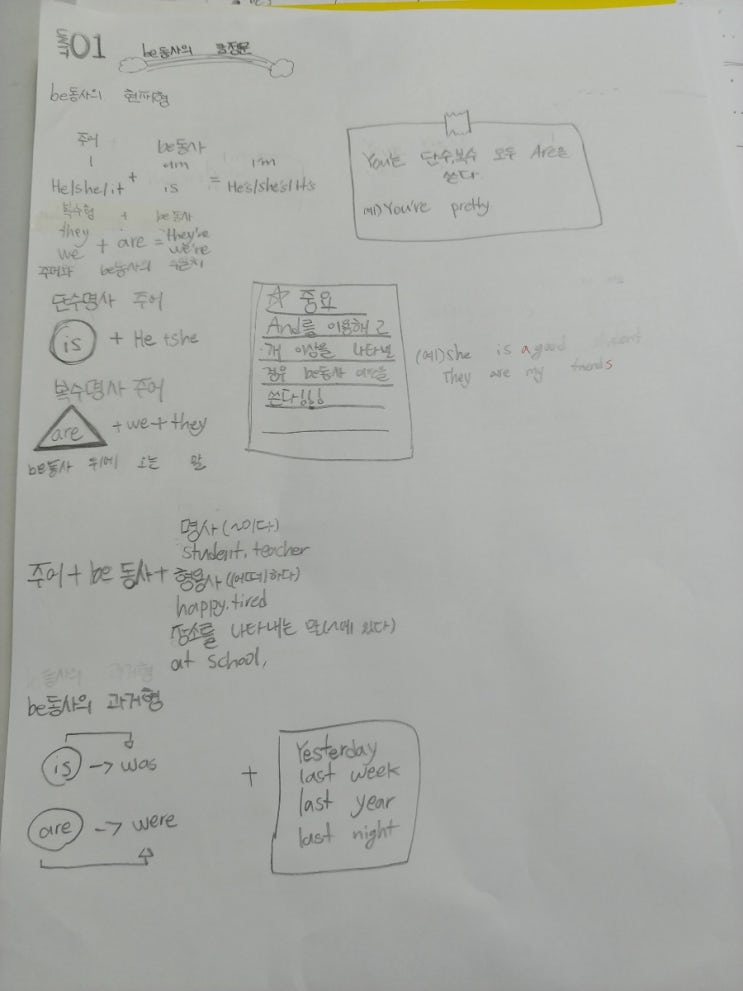 UNIT 01 be동사의 긍정문
be동사의 현재형
주어 be동사
I am I'm
He/she/it + is = He's/she's/it's
복수형 + be동사
they they're
+ are =
we we're
주어와 be동사의 수일치
You는 단수,복수 모두 Are을
쓴다.
예) You're pretty
단수명사 주어
is + He + she
복수명사 주어
are + we + they
☆ 중요
And를 이용해 2
개 이상을 나타낸
경우 be동사 를
쓴다!!!
(예) she is a good student
They are my friends
be동사 뒤에 오는 말
명사 (~이다)
student, teacher
주어 + be 동사 + 형용사 ((어떠)하다)
happy. tired
장소를 나타내는 말(~에 있다)
at school,
be동사의 과거형
be동사의 과거형
is -> was
are -> were
+
Yesterday
last week
last year
last night